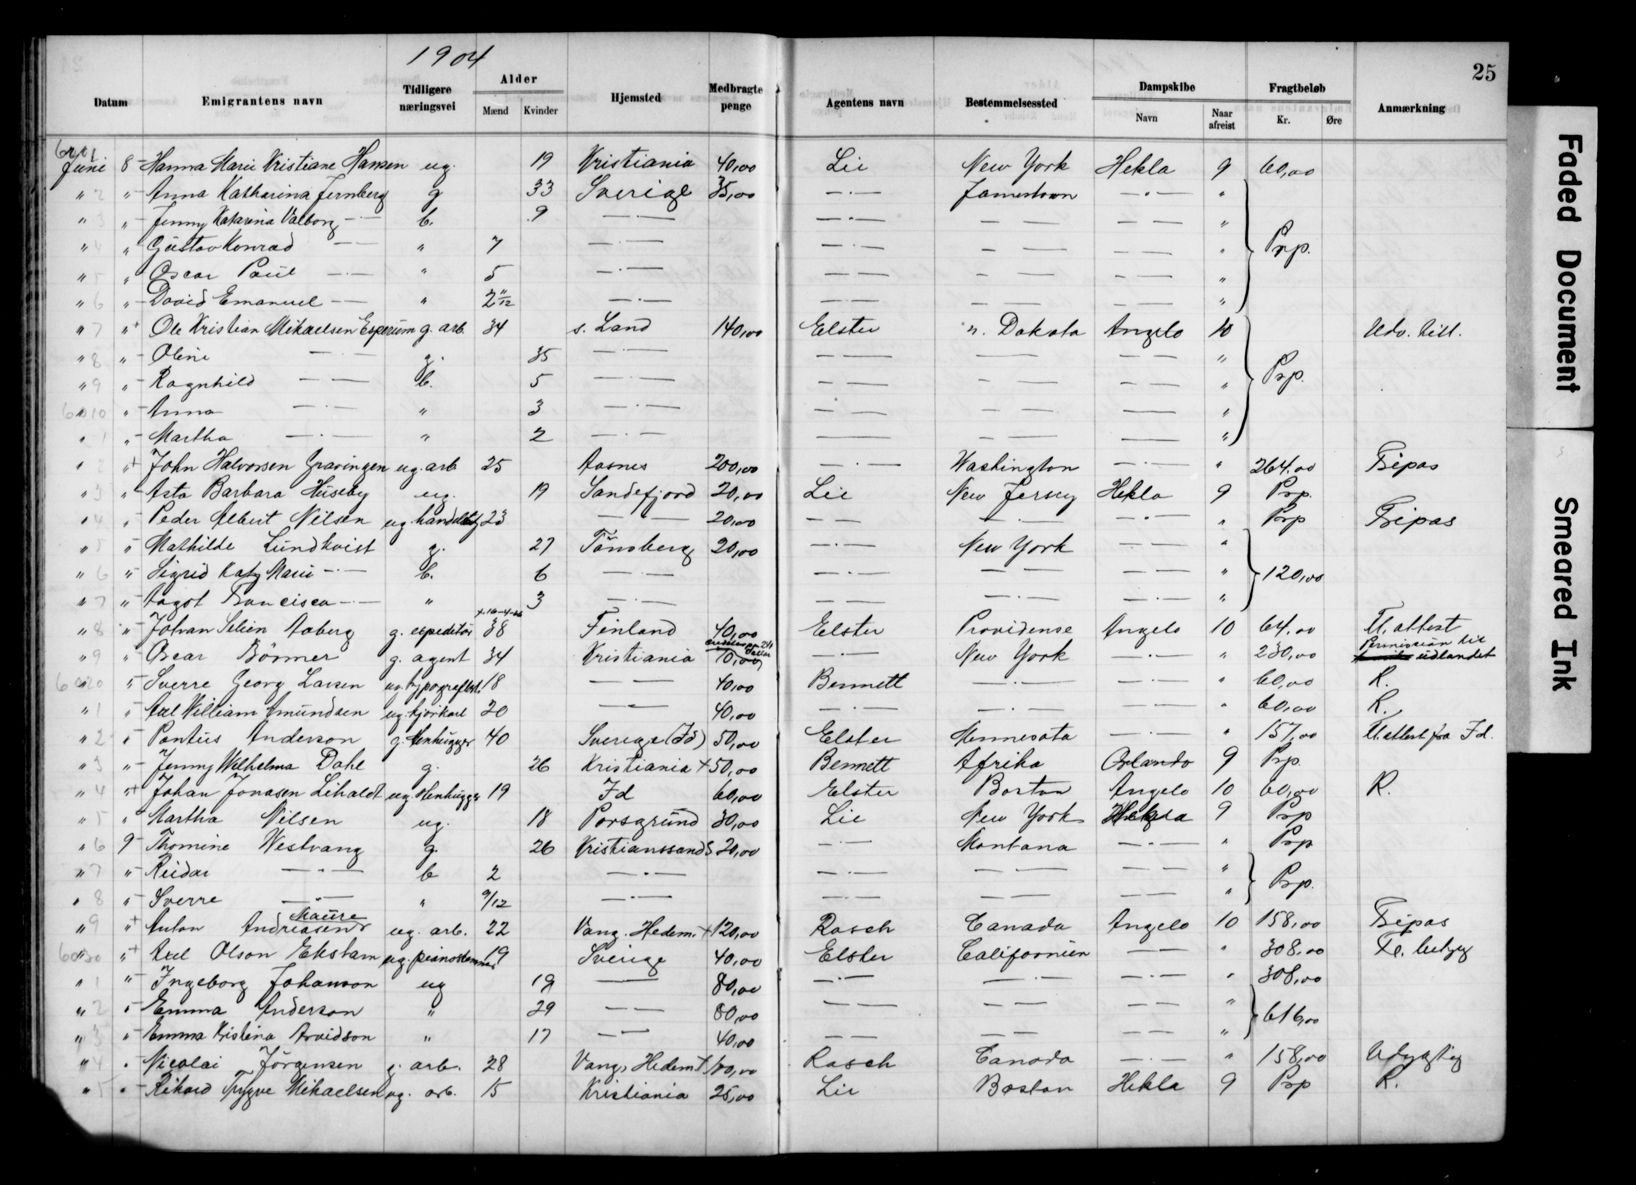 1904
25
Datum Emigrantens navn Tidligere næringsvei Alder Mænd Kvinder Hjemsted Medbragte penge Agentens navn Bestemmelsessted Dampskibe Navn Naar afreist Fragtbeløb Kr. Øre Anmærkning
Juni 8 Hanna Marie Kristiane Hansen ug. 19 Kristiania 40,00 Lie New York Hekla 9 60,00
" 2 " Anna Katharina Jernberg g 33 Sverige 35,00 — · — Jamestown — · — "
" 3 " Jenny Katarina Valborg — · — b. 9 — · — — · — — — — — "
" 4 " Gustav Konrad — — " 7 — · — — — — — — — " Prp.
" 5 " Oscar Paul — · — " 5 — · — — — — — — — "
" 6 " David Emanuel — — " 2 11/12 — · — — — — — — — "
" 7 "+ Ole Kristian Mikaelsen Esperum g. arb. 34 s. Land 140,00 Elster n. Dakota Angelo 10 Udv. till.
" 8 " Oline — · — g. 35 — · — — · — — — — — "
" 9 " Ragnhild — · — b. 5 — · — — — — — — — " Prp.
6010 " Anna — · — " 3 — · — — · — — — — — "
" 1 " Martha — · — " 2 — · — — — — — — — "
" 2 "+ John Halvorsen Gravingen ug. arb 25 Aasnes 200,00 — · — Washington — · — " 264,00 Fripas
" 3 " Asta Barbara Huseby ug. 19 Sandefjord 20,00 Lie New Jersey Hekla 9 Prp.
" 4 " Peder Albert Nilsen ug. handelsbtj 23 — — 20,00 — — — · — — · — " Prp Fripas
" 5 " Mathilde Lundkvist g. 27 Tönsberg 20,00 — · — New York — · — "
" 6 " Sigrid Katy Marie — · — b. 6 — · — — · — — — — — " 120,00
" 7 " Aagot Francisca — · — " 3 — · — — — — · — — · — "
" 8 " Johan Selien Aaberg g. expeditör 38 Finland 40,00 Elster Providense Angelo 10 64,00 Fl. attest
" 9 " Oscar Börmer g. agent 34 Kristiania 10,00 — · — New York — · — " 230,00 Permission til udlandet
6020 " Sverre Georg Larsen ug. typograflærl. 18 — — 40,00 Bennett — · — — · — " 60,00 R.
" 1 " Axel William Amundsen ug. kjörkarl 20 — — 40,00 — · — — · — — · — " 60,00 R.
" 2 " Pontus Anderson g. stenhugger 40 Sverige (Id) 50,00 Elster Minnesota — · — " 157,00 Fl. attest fra Id.
" 3 " Jenny Wilhelma Dahl g. 26 Kristiania + 50,00 Bennett Afrika Orlando 9 Prp.
" 4 "+ Johan Jonasen Lihaldt ug. stenhugger 19 Id 60,00 Elster Boston Angelo 10 60,00 R.
" 5 " Martha Nilsen ug. 18 Porsgrund 30,00 Lie New York Hekla 9 Prp
" 6 9 Thomine Westvang g. 26 Kristianssand S 20,00 — · — Montana — · — " Prp
" 7 " Reidar — · — b 2 — · — — — — — — — "
" 8 " Sverre — · — " 9/12 — · — — — — — — — " Prp.
" 9 "+ Anton Andreasen Maure ug. arb. 22 Vang. Hedem. + 120,00 Rasch Canada Angelo 10 158,00 Fripas
6030 "+ Axel Olson Ekstam ug. pianostemmer 19 Sverige 40,00 Elster Californien — — " 308,00
" 1 " Ingeborg Johanson ug 19 — — 80,00 — · — — · — — · — " 308,00
" 2 " Emma Anderson " 29 — — 80,00 — — — — — — "
" 3 " Emma Kristina Arvidson " 17 — — 40,00 — — — — — — " 616,00
" 4 " Nicolai Jörgensen g. arb. 28 Vang, Hedem. + 100,00 Rasch Canada — · — " 158,00
" 5 " Rikard Trygve Mikaelsen ug. arb. 15 Kristiania 25,00 Lie Boston Hekla 9 Prp R.
Faded Document
Smeared Ink